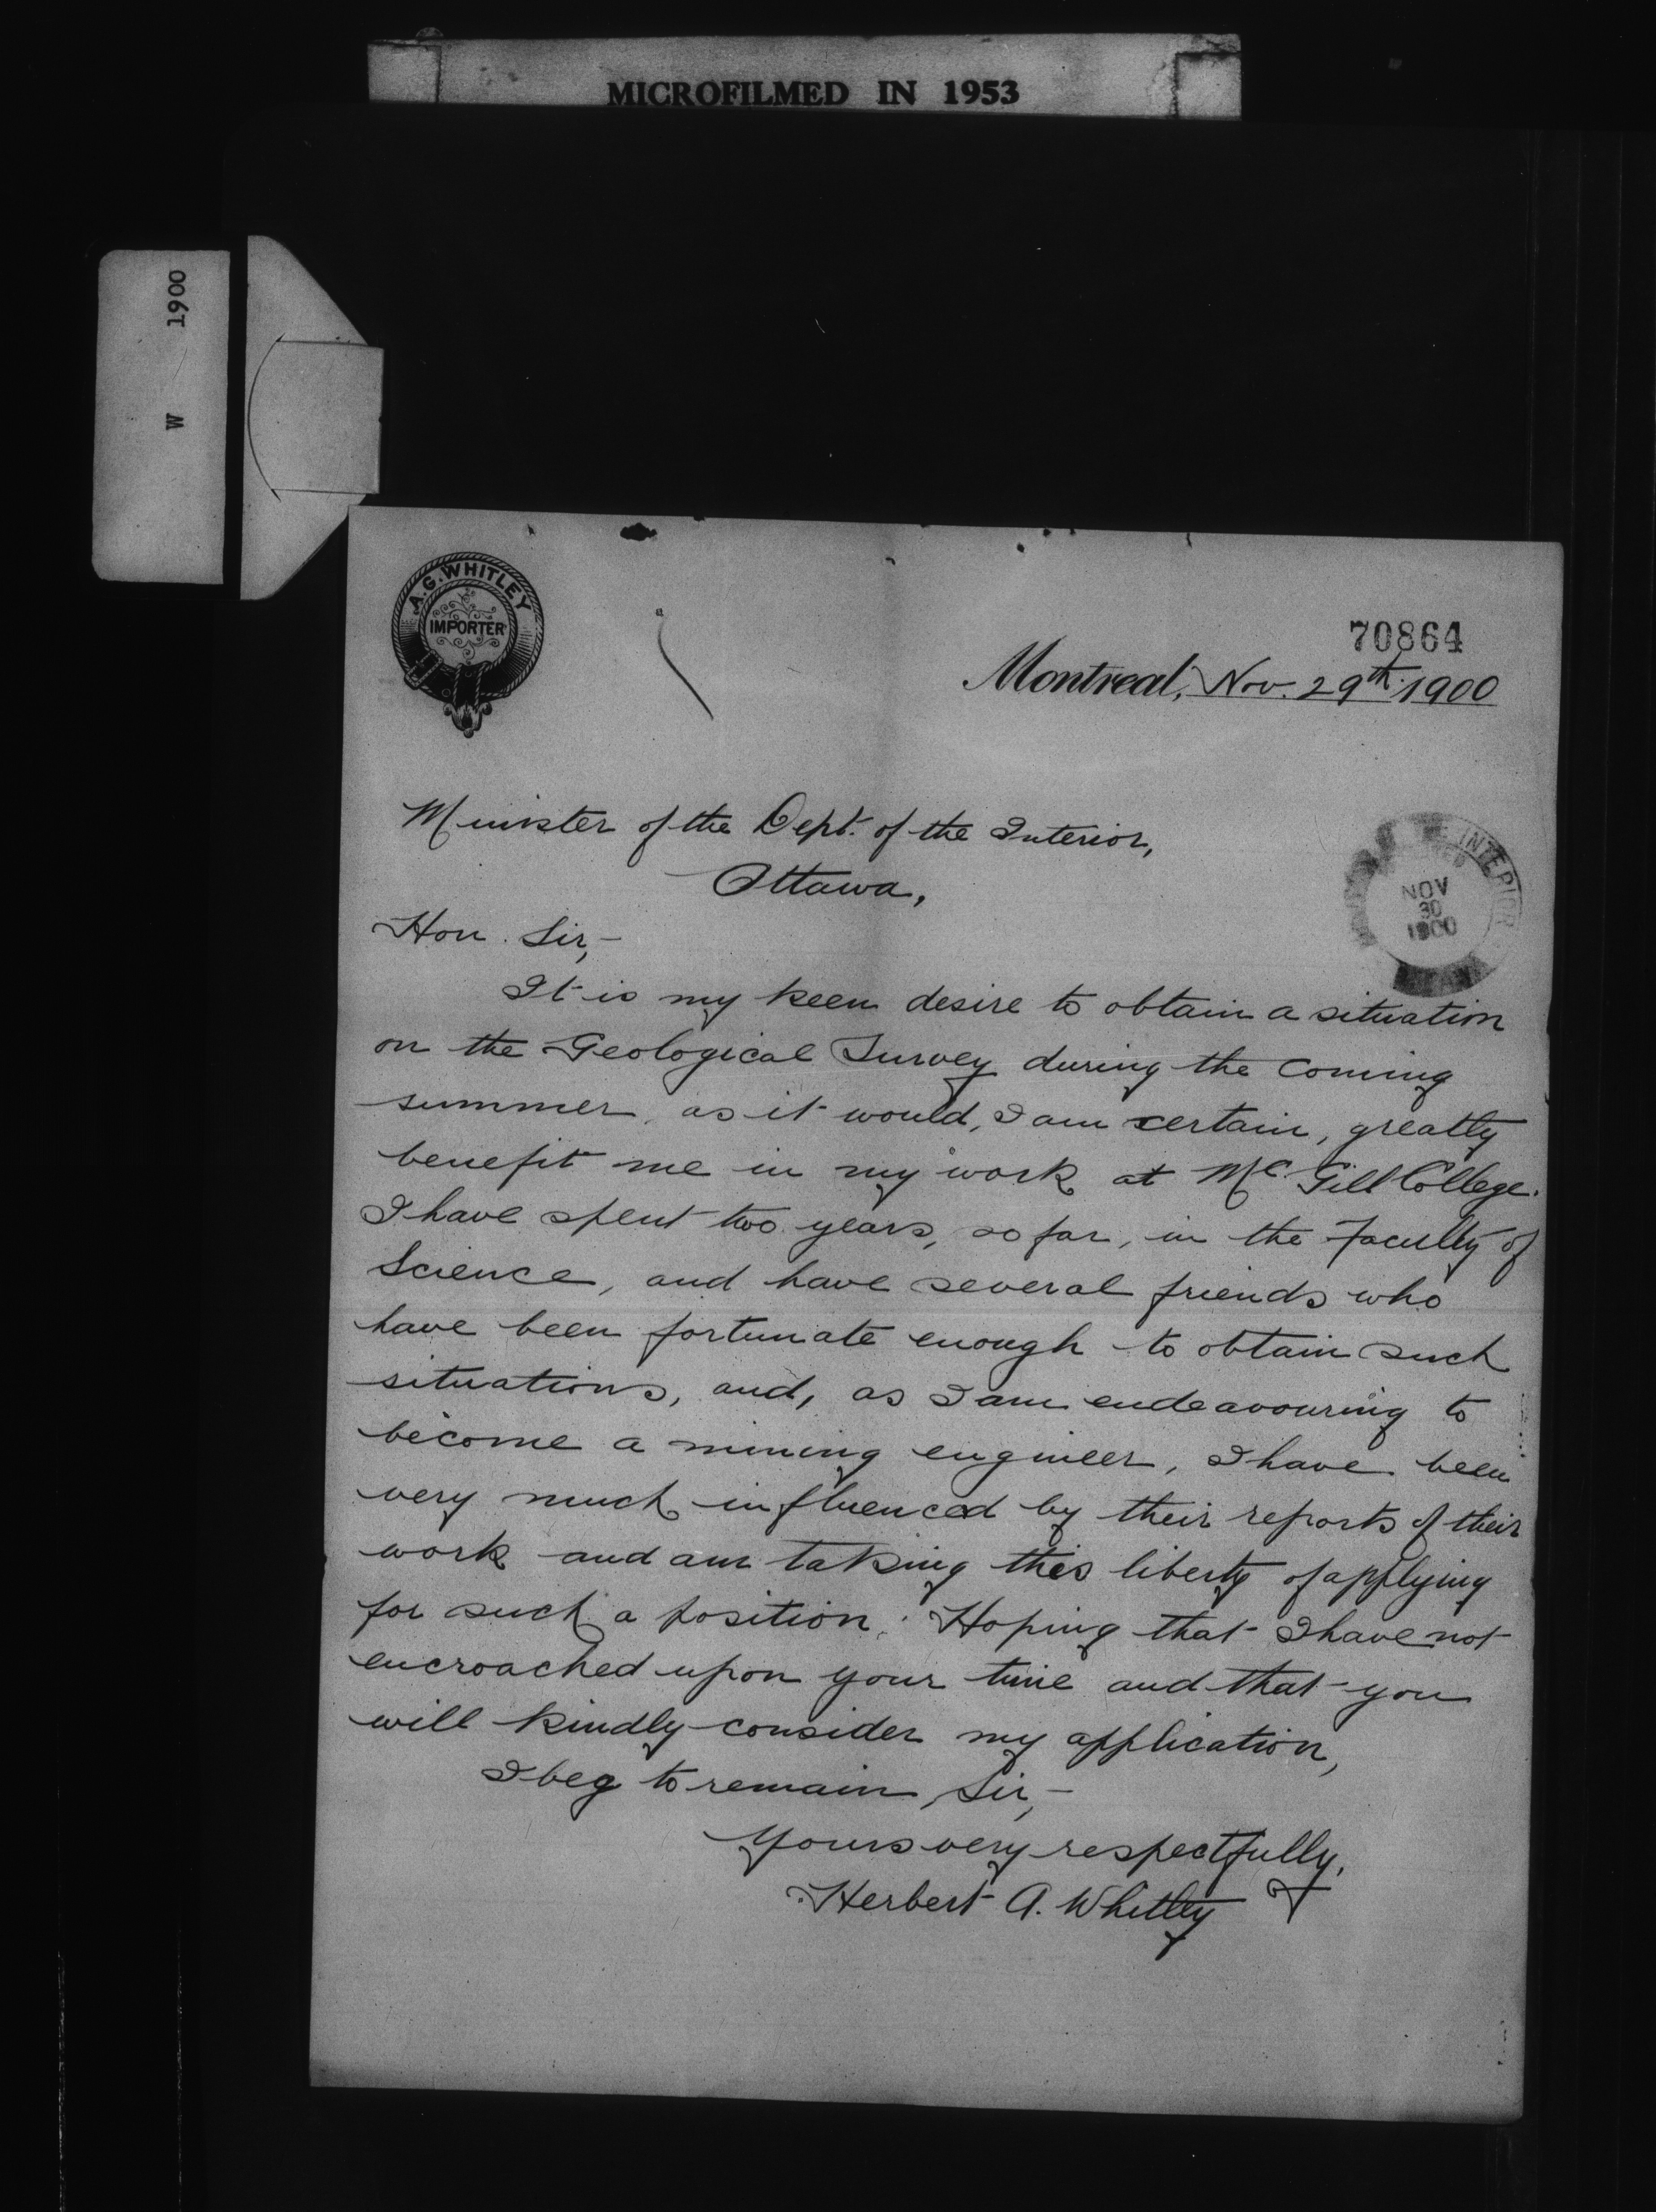 MICROFILMED IN 1953
W 1900
A. G. WHITLEY
IMPORTER
70864
Montreal, Nov. 29th 1900
Minister of the Dept. of the Interior,
Ottawa,
INTERIOR
NOV
30
1900
Hon. Sir,-
It is my keen desire to obtain a situation
on the Geological Survey during the coming
summer, as it would, I am certain, greatly
benefit me in my work at Mc. Gill College.
I have spent two years, so far, in the Faculty of
Science, and have several friends who
have been fortunate enough to obtain such
situations, and, as I am endeavouring to
become a mining engineer, I have been
very much influenced by their reports of their
work and am taking this liberty of applying
for such a position. Hoping that I have not
encroached upon your time and that you
will kindly consider my application,
I beg to remain, Sir,-
Yours very respectfully,
Herbert A. Whitley